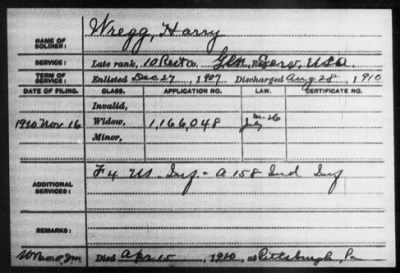 NAME OF SOLDIER: Wregg, Harry
SERVICE: Late rank, 10 Rect Co. Gen. Serv, USA
TERM OF SERVICE: Enlisted Dec 27, 1907 Discharged Aug 28, 1910
DATE OF FILING. CLASS. APPLICATION NO. LAW. CERTIFICATE NO.
Invalid,
1920 Nov 16 Widow, 1,166,048
Minor,
ADDITIONAL SERVICES: F 4 US - Inf. - A 158 Ind Inf
REMARKS:
Died Apr. 15, 1920, at Pittsburgh, Pa